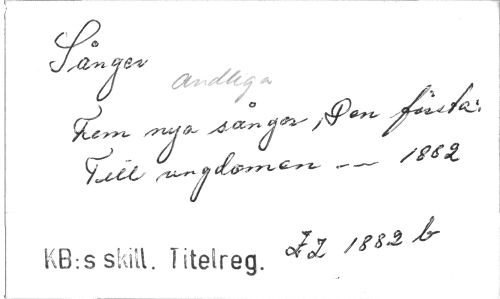 Sånger
andliga
Fem nya sånger, Den första:
Till ungdomen -- 1882
ZZ 1882 b
KB:s skill. Titelreg.